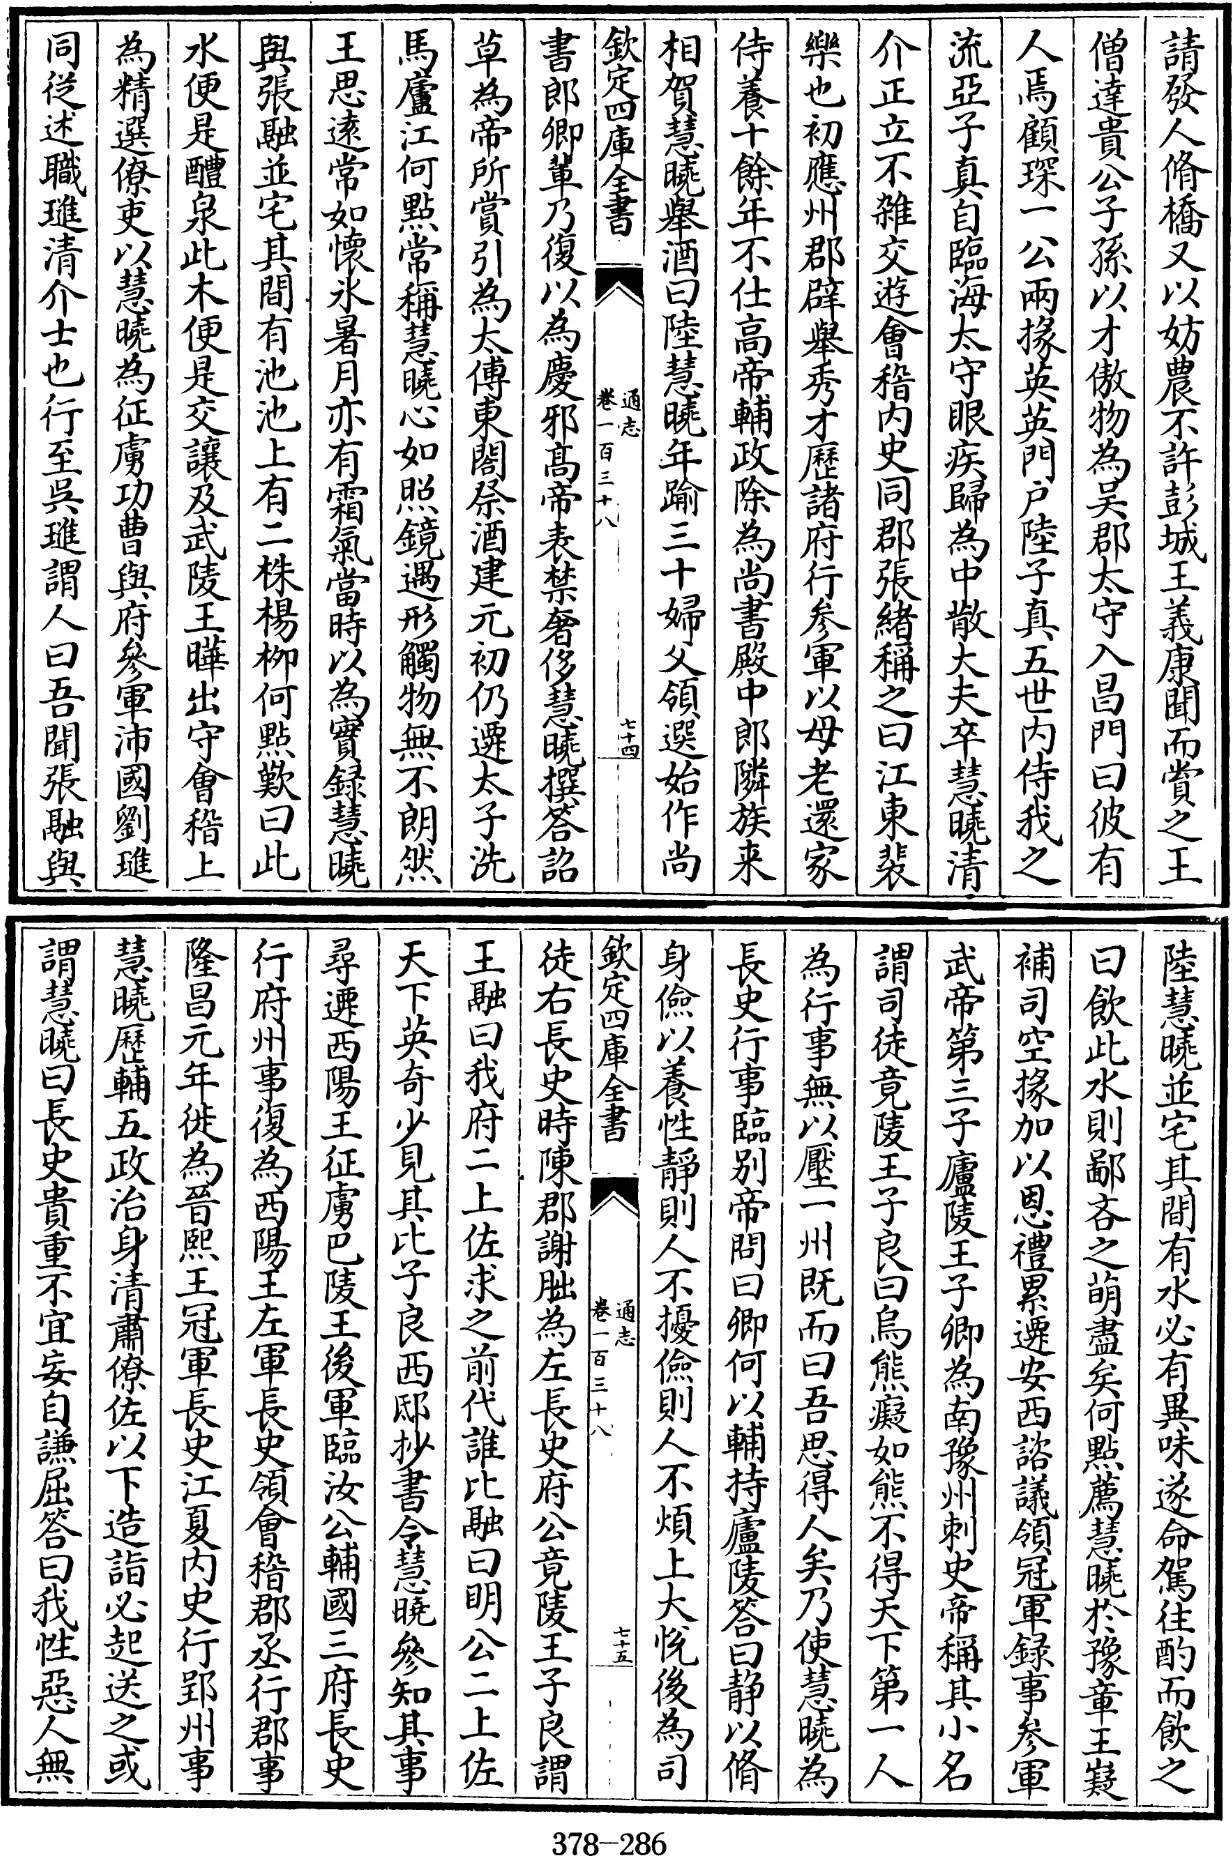 請發人脩橋又以妨農不許彭城王義康聞而賞之王
僧達貴公子孫以才傲物為吳郡太守入昌門曰彼有
人焉顧琛一公兩掾英英門户陸子真五世内侍我之
流亞子真自臨海太守眼疾歸為中散大夫卒慧曉清
介正立不雜交遊會稽内史同郡張緒稱之曰江東裴
樂也初應州郡辟舉秀才歷諸府行參軍以母老還家
侍養十餘年不仕高帝輔政除為尚書殿中郎隣族来
相賀慧曉舉酒曰陸慧曉年踰三十婦父領選始作尚
欽定四庫全書
通志
卷一百三十八
七十四
書郎卿輩乃復以為慶邪髙帝表禁奢侈慧曉撰答詔
草為帝所賞引為太傅東閣祭酒建元初仍遷太子洗
馬廬江何點常稱慧曉心如照鏡遇形觸物無不朗然
王思遠常如懷氷暑月亦有霜氣當時以為實録慧曉
與張融並宅其間有池池上有二株楊柳何點歎曰此
水便是醴泉此木便是交讓及武陵王曄出守會稽上
為精選僚吏以慧曉為征虜功曹與府參軍沛國劉璡
同從述職璡清介士也行至吳璡謂人曰吾聞張融與
陸慧曉並宅其間有水必有異味遂命駕往酌而飲之
曰飲此水則鄙吝之萌盡矣何點薦慧曉於豫章王嶷
補司空掾加以恩禮累遷安西諮議領冠軍録事參軍
武帝第三子廬陵王子卿為南豫州刺史帝稱其小名
謂司徒竟陵王子良曰烏熊癡如熊不得天下第一人
為行事無以壓一州既而曰吾思得人矣乃使慧曉為
長史行事臨别帝問曰卿何以輔持廬陵答曰静以脩
身儉以養性靜則人不擾儉則人不煩上大悅後為司
欽定四庫全書
通志
卷一百三十八
七十五
徒右長史時陳郡謝朏為左長史府公竟陵王子良謂
王融曰我府二上佐求之前代誰比融曰明公二上佐
天下英奇少見其比子良西邸抄書令慧曉參知其事
尋遷西陽王征虜巴陵王後軍臨汝公輔國三府長史
行府州事復為西陽王左軍長史領會稽郡丞行郡事
隆昌元年徙為晉熙王冠軍長史江夏内史行郢州事
慧曉歷輔五政治身清肅僚佐以下造詣必起送之或
謂慧曉曰長史貴重不宜妄自謙屈答曰我性惡人無
378-286